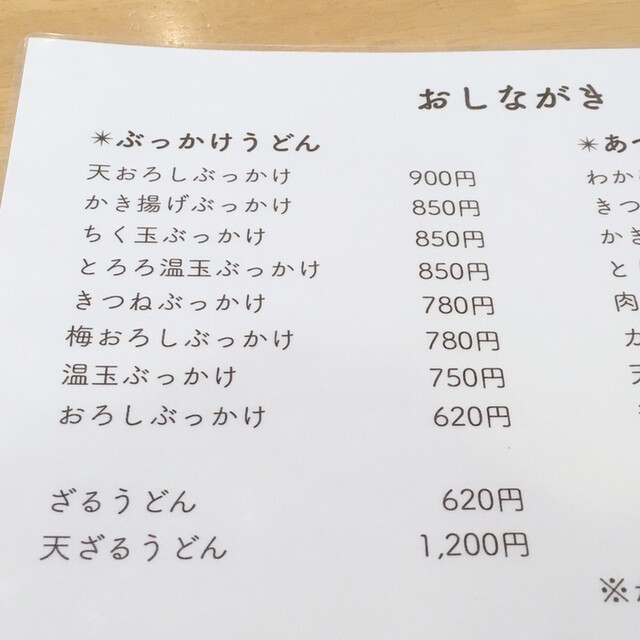 おしながき
✴ぶっかけうどん
天おろしぶっかけ 900円
かき揚げぶっかけ 850円
ちく玉ぶっかけ 850円
とろろ温玉ぶっかけ 850円
きつねぶっかけ 780円
梅おろしぶっかけ 780円
温玉ぶっかけ 750円
おろしぶっかけ 620円
ざるうどん 620円
天ざるうどん 1,200円
✴あつ
わか
きつ
かき
と
肉
※